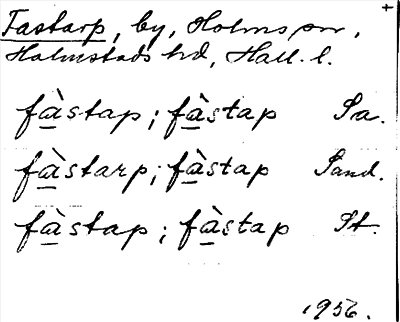 Fastarp, by, Holms sn,
Halmstads hd, Hall. l.
fàstap; fàstap Sa.
fàstarp; fàstap Sand.
fàstap; fàstap St.
1956.